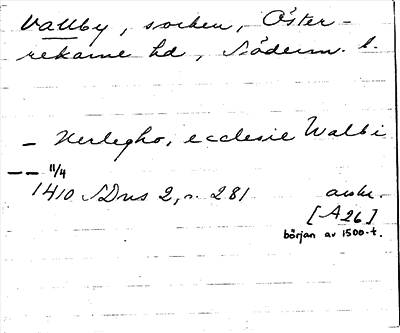 Vallby, socken, Öster-
rekarne hd, Söderm. l.
– Herlegho, ecclesie Walbi
– – 11/4
1410 SDns 2, s. 281 avskr.
[A 26]
början av 1500-t.